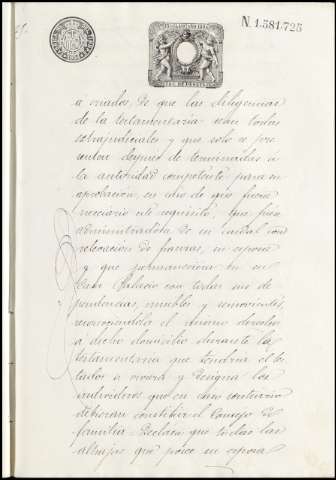 N.1.581.725
a criados, de que las diligencias
de la testamentaria sean todas
extrajudiciales y que solo se pre
sentan despues de terminadas a
la autoridad competente para su
aprobación, en caso de que fuera
necesario este requisito, que fuera
administradora de su caudal con
relevacion de fianzas, su esposa
y que permaneciera en su
Casa Palacio con todas sus de
pendencias, muebles y semovientes,
reconociendole el mismo derecho
a dicho domicilio durante la
testamentaria que tendria el
a vivir y designa los
individuos que en caso contrario
deberan constituir el Consejo de
familia. Declara que todas las
alhajas que posee su esposa